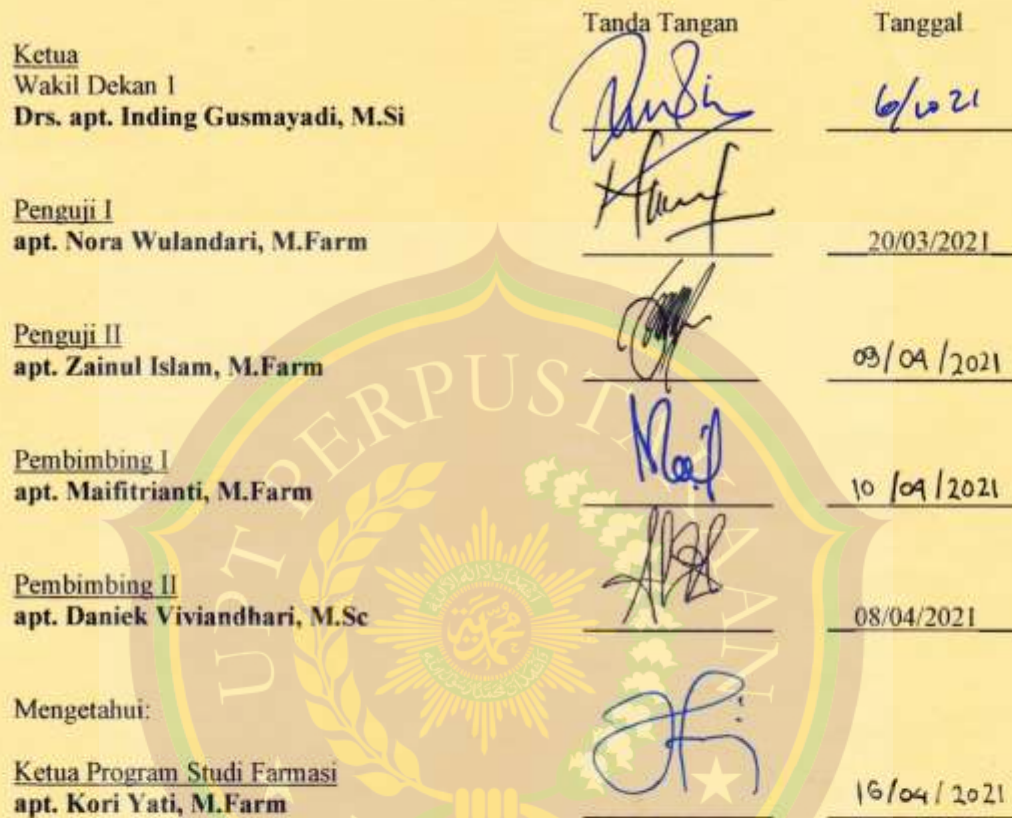 Tanda Tangan Tanggal
Ketua
Wakil Dekan 1
Drs. apt. Inding Gusmayadi, M.Si
Penguji I
apt. Nora Wulandari, M.Farm 20/03/2021
Penguji II
apt. Zainul Islam, M.Farm 09/04/2021
Pembimbing I
apt. Maifitrianti, M.Farm 10/04/2021
Pembimbing II
apt. Daniek Viviandhari, M.Sc 08/04/2021
Mengetahui:
Ketua Program Studi Farmasi
apt. Kori Yati, M.Farm 16/04/2021
UPT PERPUSTAKAAN